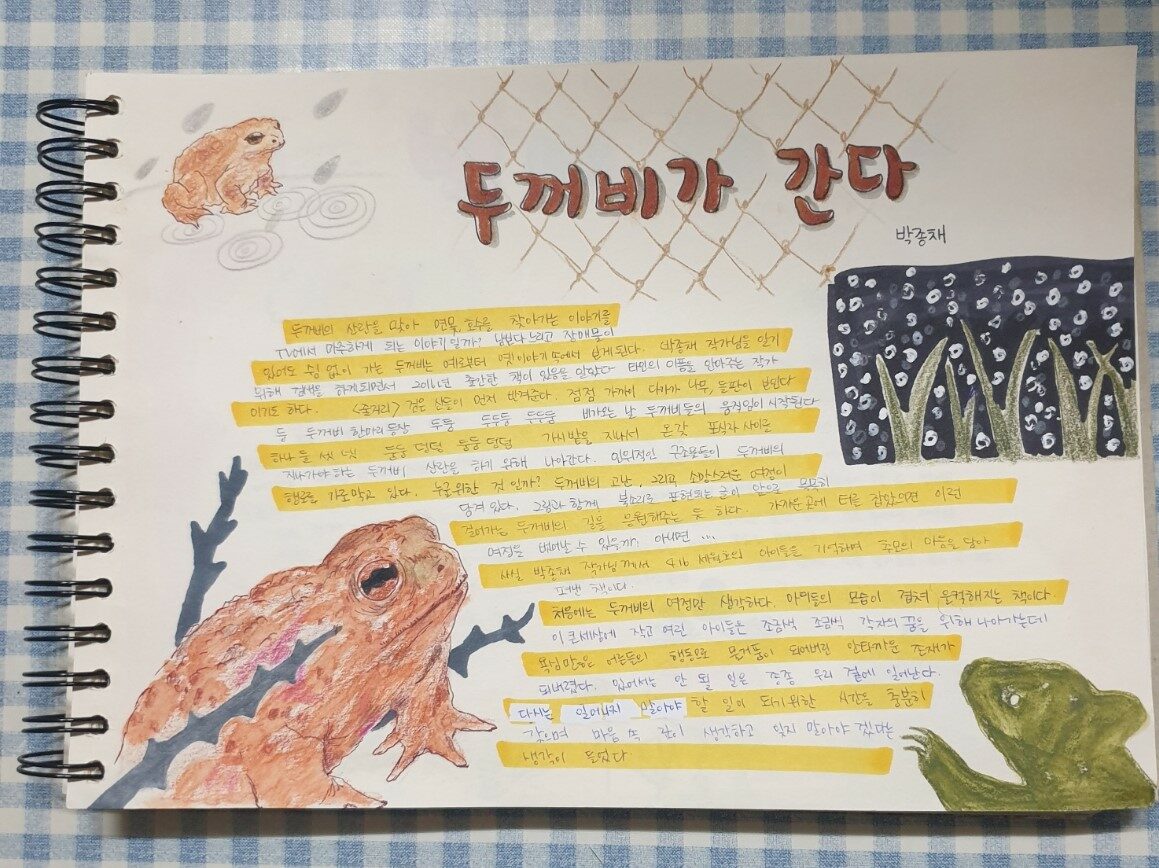 두꺼비가 간다
박종채
두꺼비의 산란을 맞아 연못, 호수를 찾아가는 이야기를
TV에서 마주하게 되는 이야기일까? 남보다 느리고 장애물이
있어도 쉼 없이 가는 두꺼비는 예로부터 옛이야기 속에서 보게된다. 박종채 작가님을 알기
위해 검색을 하게되면서 2016년 출간한 책이 있음을 알았다 타인의 아픔을 안아주는 작가
이기도 하다. <줄거리> 검은 산들이 먼저 반겨준다. 점점 가까이 다가가 나무, 들판이 보인다
둥 두꺼비 한마리 등장 두둥 두두둥 두둥둥 비가오는 날 두꺼비들의 움직임이 시작된다
하나 둘 셋 넷 둥둥 덩덩 둥둥 덩덩 가시밭을 지나서 온갖 표식과 사이로
지나가야 하는 두꺼비 산란을 하기 위해 나아간다. 인위적인 구조물들이 두꺼비의
행로를 가로막고 있다. 누굴위한 것 인가? 두꺼비의 고난, 그리고 소망스러운 여정이
담겨 있다. 그림과 함께 북소리로 표현되는 글이 앞으로 묵묵히
걸어가는 두꺼비의 길을 응원해주는 듯 하다. 가까운 곳에 터를 잡았으면 이런
여정을 벗어날 수 있을까? 아니면 ...
사실 박종채 작가님께서 4.16 세월호의 아이들을 기억하며 추모의 마음을 담아
펴낸 책이다.
처음에는 두꺼비의 여정만 생각하다. 아이들의 모습이 겹쳐 울컥해지는 책이다.
이 큰세상에 작고 여린 아이들은 조금씩, 조금씩 각자의 꿈을 위해 나아가는데
욕심많은 어른들의 행동으로 물거품이 되어버린 안타까운 존재가
되버렸다. 있어서는 안 될 일은 종종 우리 곁에 일어난다.
다시는 일어나지 말아야 할 일이 되기위한 시간을 충분히
갖으며 마음 속 깊이 생각하고 잊지 말아야 겠다는
생각이 들었다